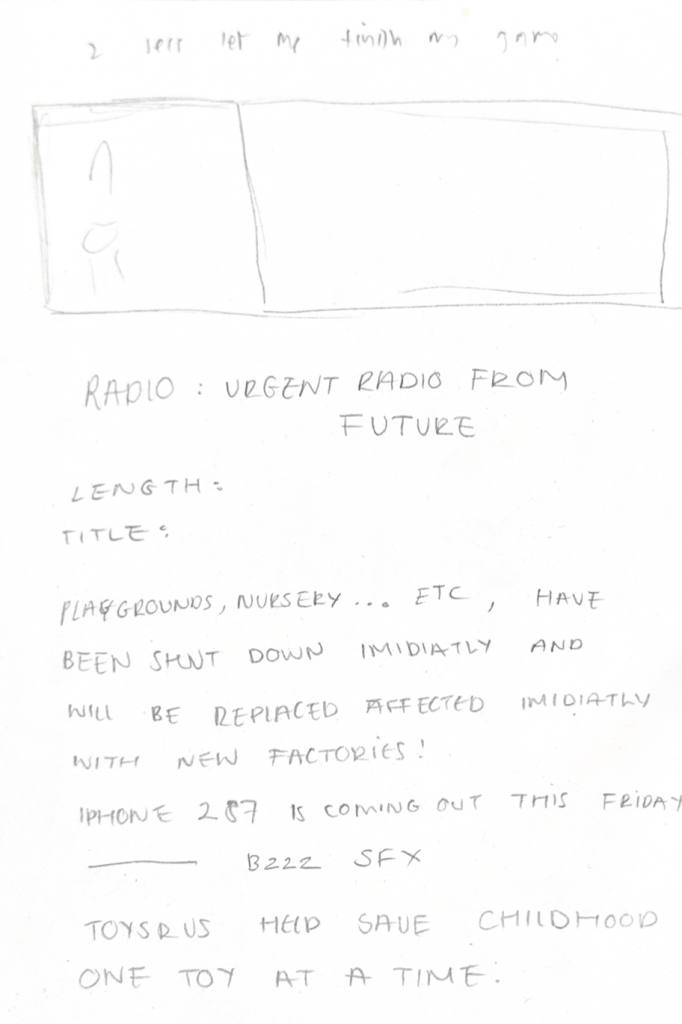 2 secs let me finish my game
RADIO : URGENT RADIO FROM
FUTURE
LENGTH :
TITLE :
PLAYGROUNDS, NURSERY ... ETC , HAVE
BEEN SHUT DOWN IMIDIATLY AND
WILL BE REPLACED AFFECTED IMIDIATLY
WITH NEW FACTORIES!
IPHONE 287 IS COMING OUT THIS FRIDAY
BZZZ SFX
TOYSRUS HELP SAVE CHILDHOOD
ONE TOY AT A TIME.